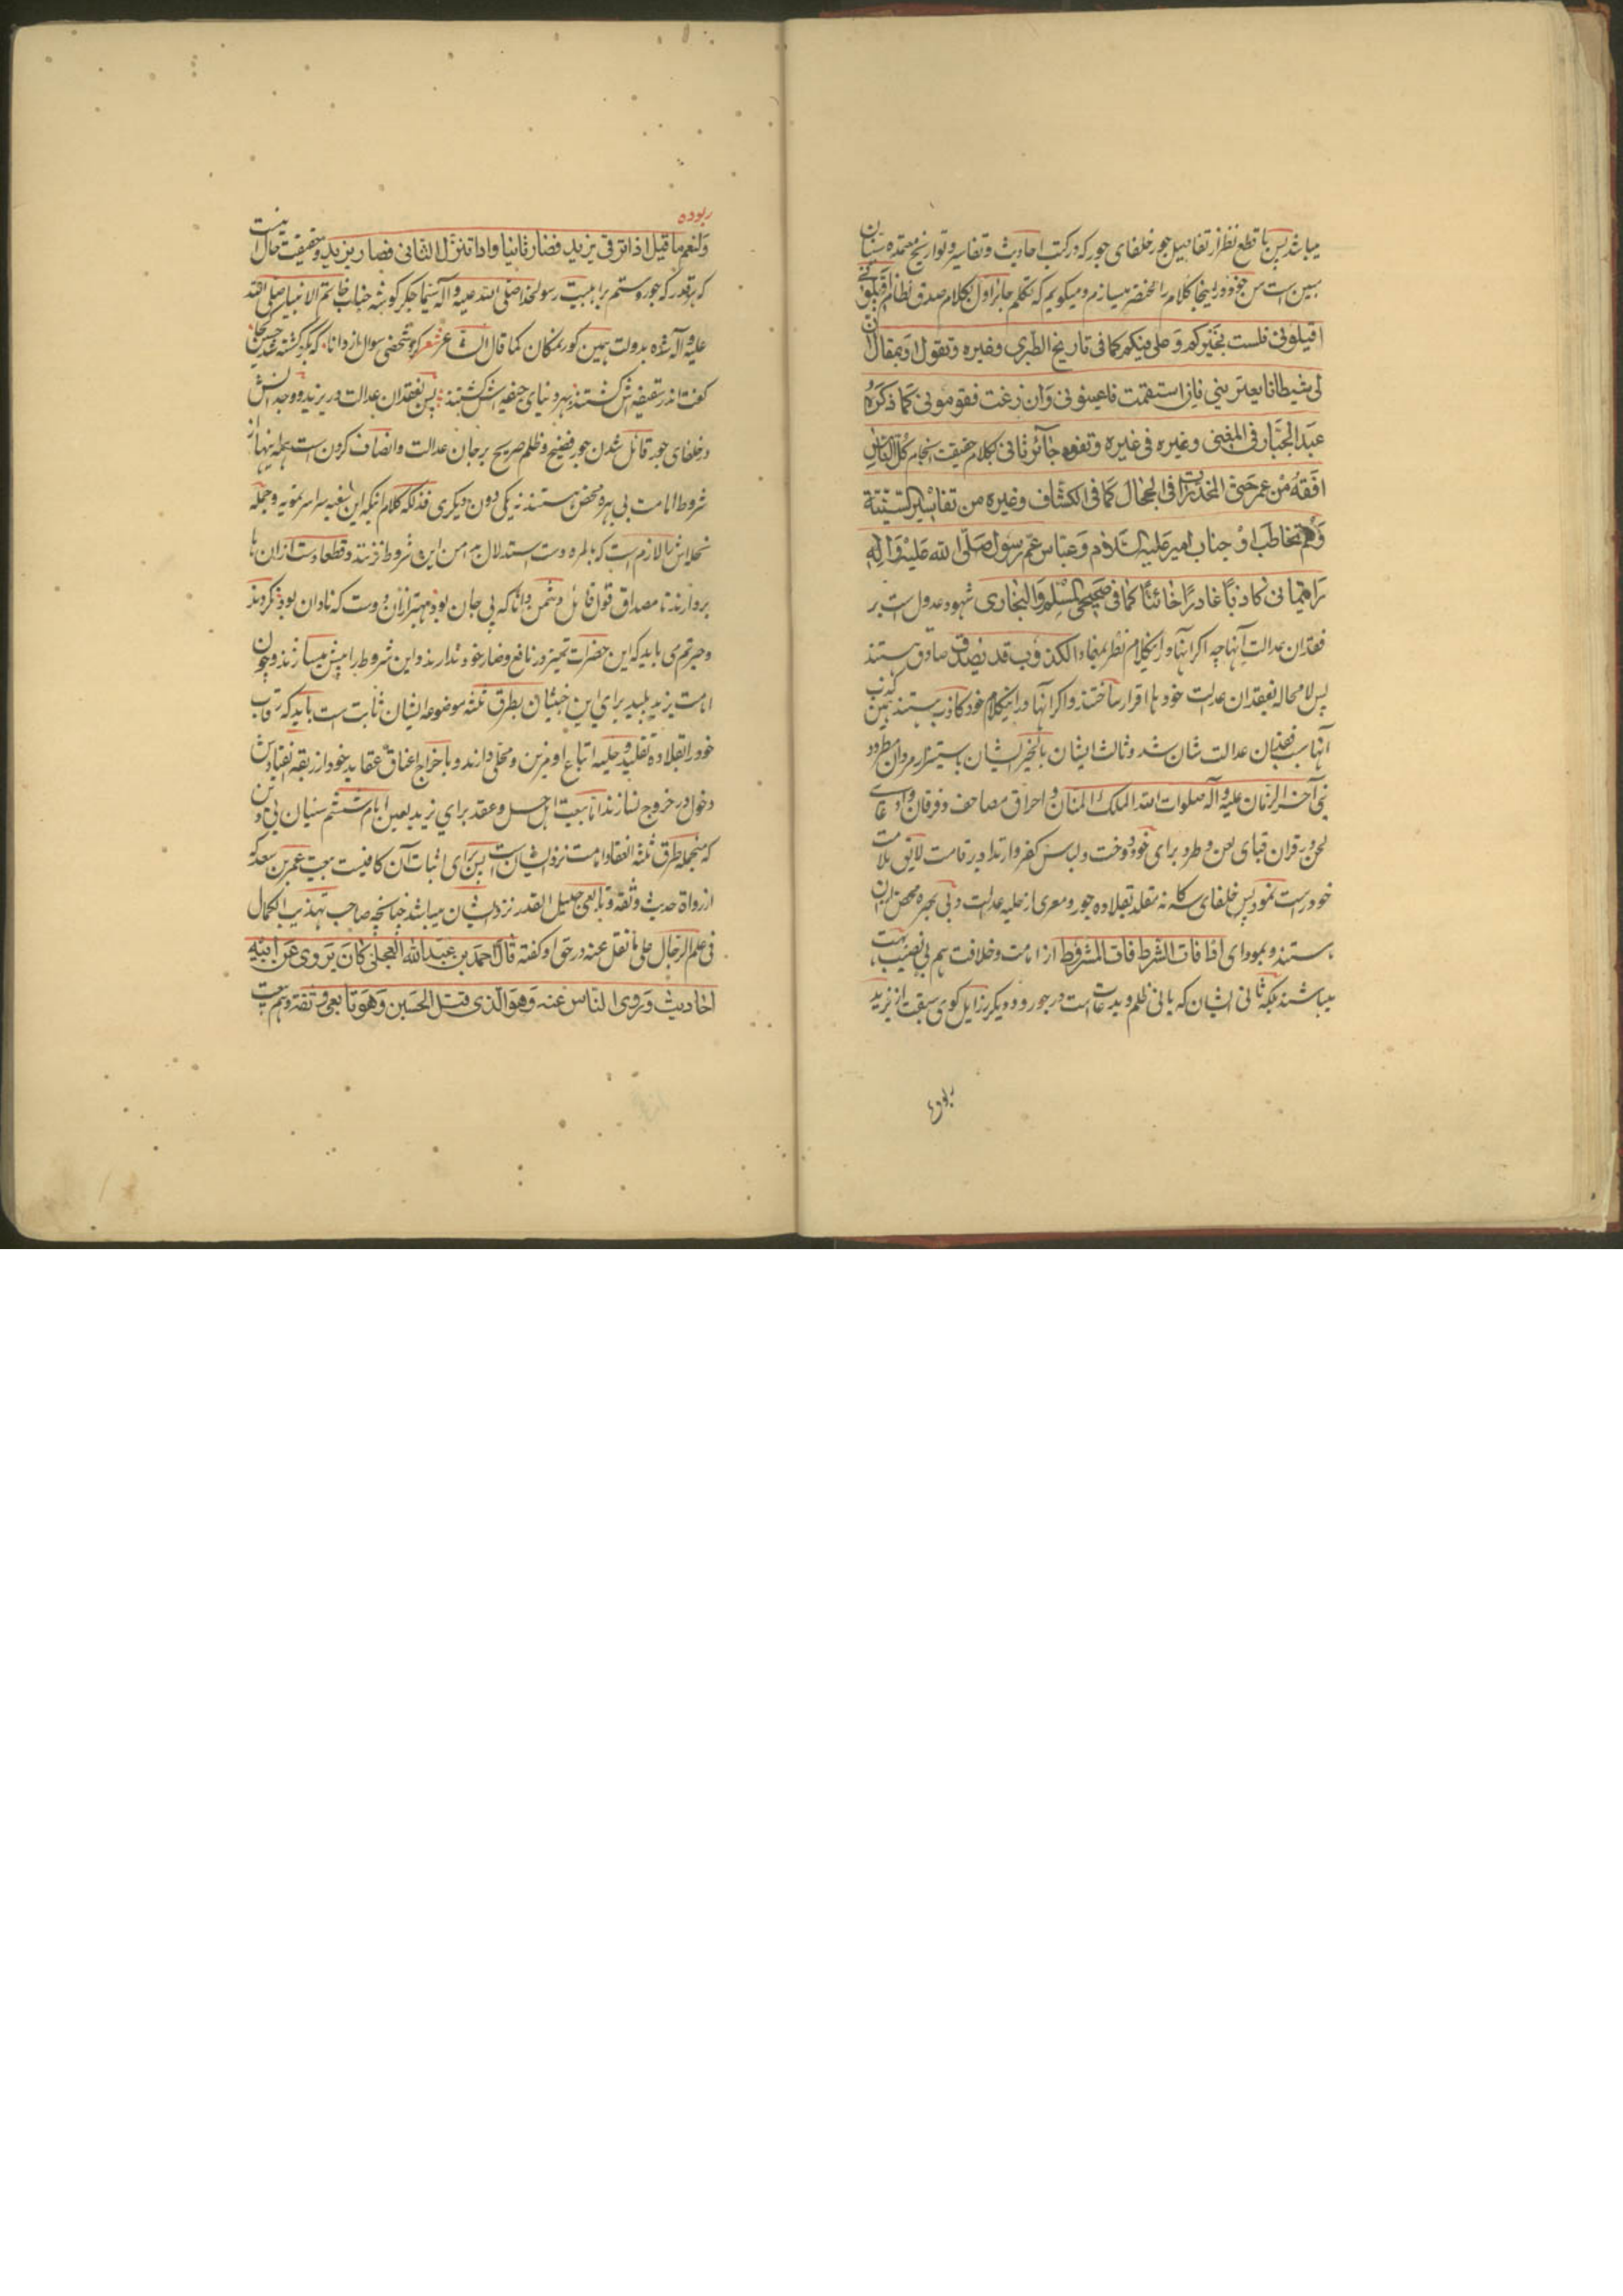 میباشد پس با قطع نظر از تفاصیل جور خلفای جور که در کتب احادیث و تفاسیر و تواریخ معتمده سنیان
مبین است من جزوه در اینجا کلام را مختصر میسازم و میگویم که تکلم جائر اول بکلام صدق نظام اقیلونی
اقیلونی فلست بخیرکم و علی فیکم کما فی تاریخ الطبری و غیره و تقول او بمقال ان
لی شیطانا یعترینی فان استقمت فاعینونی وان زغت فقومونی کما ذکره
عبد الجبار فی المغنی و غیره فی غیره و تفوه جائر ثانی بکلام حقیقت انجام کل الناس
افقه من عمر حتی المخدرات فی الحجال کما فی الکشاف و غیره من تفاسیر السنیة
و تخاطب او جناب امیر علیه السلام و عباس عم رسول صلی الله علیه و اله
رأیتمانی کاذبا غادرا خائنا کما فی صحیحی المسلم و البخاری شهود عدول است بر
فقدان عدالت آنها چه اگر آنها در این کلام نظر بمفاد الکذوب قد یصدق صادق هستند
پس لا محاله بفقدان عدالت خود ها اقرار ساختند و اگر آنها در اینکلام خود کاذب هستند همین کذب
آنها سبب فقدان عدالت شان شد و ثالث ایشان بالخیر ایشان باستیزار مروان مطرود
نبی آخر الزمان علیه و آله صلوات الله الملک المنان و احراق مصاحف و فرقان و ادعای
لحن در قران قبای لعن و طرد برای خود دوخت و لباس کفر و ارتداد بر قامت لایق ملامت
خود راست نمود پس خلفای سه گانه مقلد بقلاده جور و معری از حلیه عدالت و بی بهره محض از ان
هستند و بمودای اذا فات الشرط فات المشروط از امامت و خلافت هم بی نصیب بحت
میباشند بلکه ثانی ایشان که بانی ظلم و بدعات است در جور و دیگر رذایل گوی سبقت از یزید
ربوده
ربوده
ولنعم ما قیل اذا ترقی یزید فصار ثانیا و اذا تنزل الثانی فصار یزید و حقیقت حال اینست
که هر قدر که جور و ستم بر اهلبیت رسولخدا صلی الله علیه و آله سیما جگر گوشه جناب خاتم الانبیا صلی الله
علیه و آله شده بدولت همین گور نمکان کما قال الشاعر شعر کرد شخصی سوال از دانا که بگو کشته شد حسین کجا
گفت اندر سقیفه اش کشتند بهر دنیای جیفه اش کشتند پس بفقدان عدالت در یزید و وجدانش
در خلفای جور قائل شدن جور فضیح و ظلم صریح بر جان عدالت و انصاف کردن است همه اینها از
شروط امامت بی بهره محض هستند نه یکی دون دیگری فذلکه کلام اینکه این شعبه سراسر تمویه و جمله
نحله اش را لازم است که بالمره دست استدلال بدامن این شروط نزنند و قطعا دست از ان ها
بردارند تا مصداق قول قائل دشمن دانا که پی جان بود بهتر از ان دوست که نادان بود نگردند
و حیرتم می باید که این حضرات تمییز در نافع و ضار خود ندارند و این شروط را پیش میسازند و چون
امامت یزید پلید برای این خبیثان بطرق ثلثه موضوعه ایشان ثابت است باید که رقاب
خود را بقلاده تقلید و حلیه اتباع او مزین و محلی دارند و باخراج اعناق عقاید خود از ربقه انقیادش
دخول در خروج نسازند اما بیعت اهل حل و عقد برای یزید یعنی امام ششم سنیان بی دین
که منجمله طرق ثلثه انعقاد امامت نزد ایشان است پس برای اثبات آن کافیست بیعت عمر بن سعد که
از رواة حدیث و ثقه و تابعی جلیل القدر نزد ایشان میباشد چنانچه صاحب تهذیب الکمال
فی علم الرجال علی ما نقل عنه در حق او گفته قال احمد بن عبد الله العجلی کان یروی عن ابیه
احادیث و یروی الناس عنه و هو الذی قتل الحسین و هو تابعی ثقه و هم بیعت